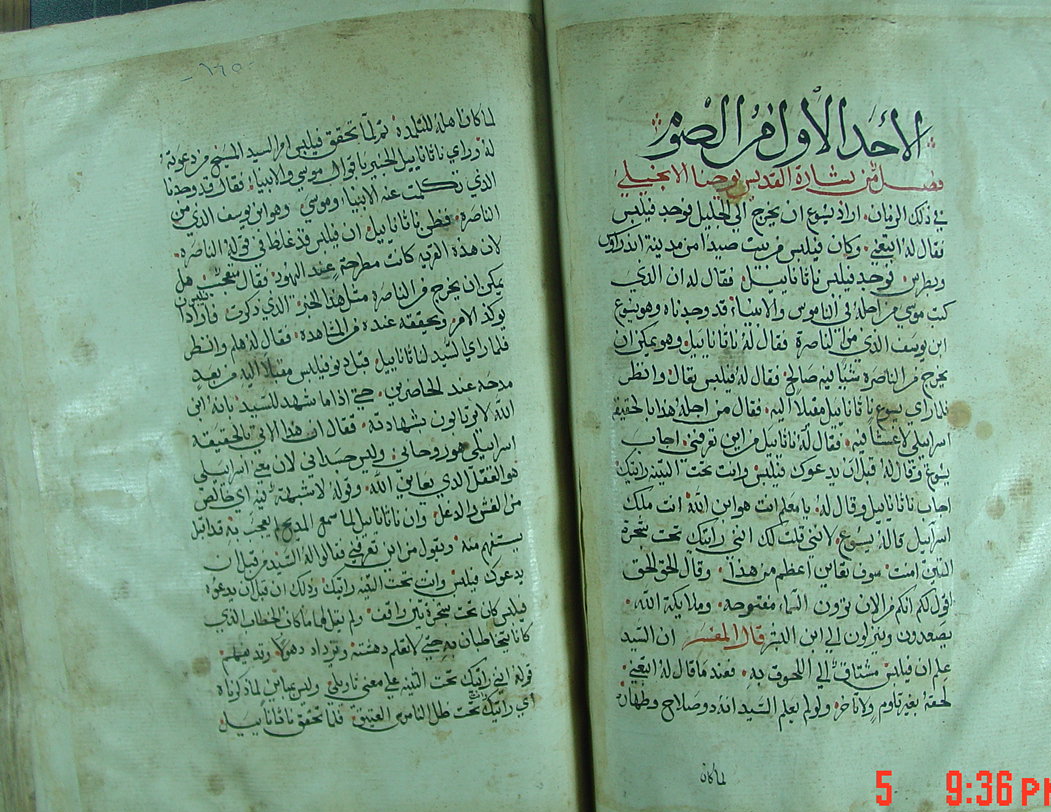 الاحد الاول من الصوم
فصل من بشارة القديس يوحنا الانجيلي
في ذلك الزمان. اراد يسوع ان يخرج الي الجليل فوجد فيلبس
فقال له اتبعني. وكان فيلبس من بيت صيدا من مدينة اندراوس
وبطرس. فوجد فيلبس ناثانابيل. فقال له ان الذي
كتب موسي من اجله في الناموس والانبيا. قد وجدناه وهو يسوع
ابن يوسف الذي من الناصرة. فقال له ناثانابيل وهو يمكن ان
يخرج من الناصرة شيا فيه صالح. فقال له فيلبس تعال وانظر
فلما راي يسوع ناثانابيل مقبلا اليه. فقال من اجله هذا بالحقيقه
اسراييلي لا غش فيه. فقال له ناثانابيل من اين تعرفني. اجاب
يسوع وقال له قبل ان يدعوك فيلبس وانت تحت التينه رايتك
اجاب ناثانابيل وقال له. يا معلم انت هو ابن الله انت ملك
اسراييل قال له يسوع. لانني قلت لك انني رايتك تحت شجرة
التين امنت. سوف تعاين اعظم من هذا. وقال الحق الحق
اقول لكم انكم من الان ترون السماء مفتوحه. وملايكة الله.
يصعدون وينزلون الي ابن البشر قال المفسر ان السيد
علم ان فيلبس مشتاق الي اللحوق به. فعند ما قال له اتبعني
لحقه بغير تاوم ولا تاخر. ولو لم يعلم السيد انه ذو صلاح وطهارة
لما كان
٦٦٥
لما كان اهله للتلمذة ثم لما تحقق فيلبس امر السيد المسيح من دعوته
له وراي ناثانابيل الخبير باقوال موسي والانبيا. فقال قد وجدنا
الذي تكلمت عنه الانبيا وموسي. وهو ابن يوسف الذي من
الناصرة. فظن ناثانابيل. ان فيلبس قد غلط في قوله الناصرة.
لان هذه القريه كانت مطرحة عند اليهود. فقال متعجب هل
يمكن ان يخرج من الناصرة مثل هذا الخبر الذي ذكرت. فاراد فيلبس ان
يوكد الامر وتحققه عنده من المشاهده. فقال له هلم وانظر
فلما راي السيد لناثانابيل. قبل ان فيلبس مقبلا اليه من بعد
مدحه عند الحاضرين. حتي اذا ما شهد للسيد بانه ابن
الله لا يرتابون شهادته. فقال ان هذا الاتي بالحقيقه
اسراييلي هو روحاني. وليس جسداني لان معني اسراييلي
هو العقل الذي يعاين الله. وقوله لا شبهة فيه اي خالص
من الغش والدغل. وان ناثانابيل لما سمع المديح اعجب به قدامه
يستفهم منه. ويقول من اين تعرفني فقال له السيد من قبل ان
يدعوك فيلبس وانت تحت التينه رايتك وذلك ان قبل ان يدعوه
فيلبس كان تحت شجرة تين واقف. ولم يقل لهما ما كان الخطاب الذي
كانا يتخاطبان به حتي لا تعلم دهشته وتزداد
قوله انني رايتك تحت التينه علي معني تاويلي. وليس مباين لما ذكرناه
اي رايتك تحت ظل الناموس العتيق. فلما تحقق ناثانابيل
5 9:36 PM